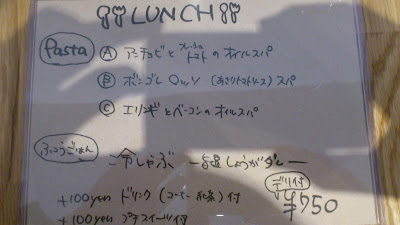 LUNCH
Pasta
Ⓐ アンチョビとフレッシュトマトのオイルスパ
Ⓑ ボンゴレロッソ（あさりトマトソース）スパ
Ⓒ エリンギとベーコンのオイルスパ
ふつうごはん
冷しゃぶ ー旨辛しょうがダレー
デリ付
¥750
+100yen ドリンク（コーヒー 紅茶）付
+100yen プチスイーツ付